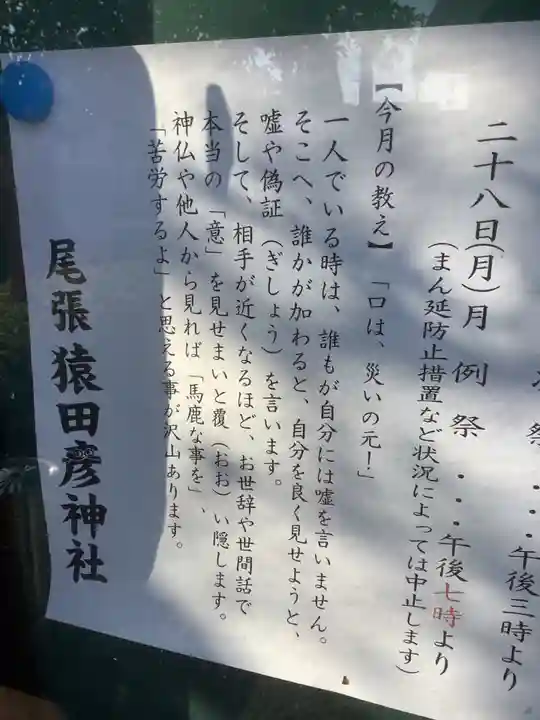 ・・・午後三時より
二十八日(月)月例祭・・・午後七時より
(まん延防止措置など状況によっては中止します)
【今月の教え】「口は、災いの元！」
一人でいる時は、誰もが自分には嘘を言いません。
そこへ、誰かが加わると、自分を良く見せようと、
嘘や偽証(ぎしょう)を言います。
そして、相手が近くなるほど、お世辞や世間話で
本当の「意」を見せまいと覆(おお)い隠します。
神仏や他人から見れば「馬鹿な事を」、
「苦労するよ」と思える事が沢山あります。
尾張猿田彦神社